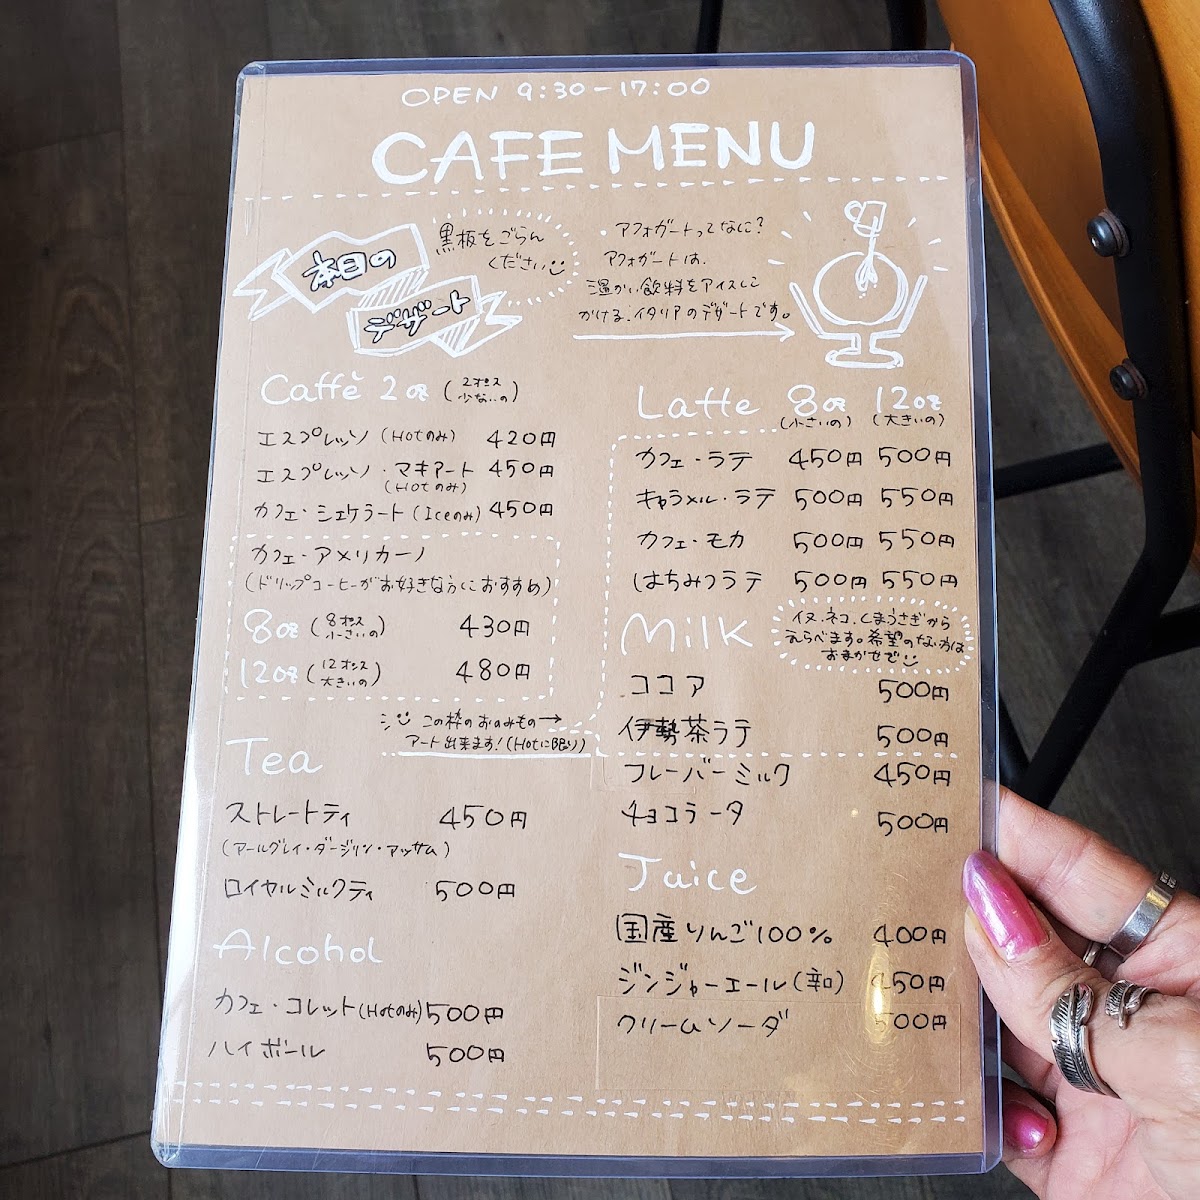 OPEN 9:30-17:00
CAFE MENU
本日の
デザート
黒板をごらん
ください
・アフォガートってなに?
アフォガートは、
温かい飲料をアイスに
かける、イタリアのデザートです。
Caffè 2oz (2オンス 少ないの)
エスプレッソ (Hotのみ) 420円
エスプレッソ・マキアート 450円
(HOTのみ)
カフェ・シェケラート (Iceのみ) 450円
カフェ・アメリカーノ
(ドリップコーヒーがお好きな方におすすめ)
8oz (8オンス 小さいの) 430円
12oz (12オンス 大きいの) 480円
この枠のおのみもの→
アート出来ます!(Hotに限り)
Tea
ストレートティ 450円
(アールグレイ・ダージリン・アッサム)
ロイヤルミルクティ 500円
Alcohol
カフェ・コレット(Hotのみ) 500円
ハイボール 500円
Latte 8oz 12oz
(小さいの) (大きいの)
カフェ・ラテ 450円 500円
キャラメル・ラテ 500円 550円
カフェ・モカ 500円 550円
はちみつラテ 500円 550円
Milk
イヌ、ネコ、くまうさぎから
えらべます。希望のない方は
おまかせで
ココア 500円
伊勢茶ラテ 500円
フレーバーミルク 450円
チョコラータ 500円
Juice
国産りんご100% 400円
ジンジャーエール(辛口) 450円
クリームソーダ 500円